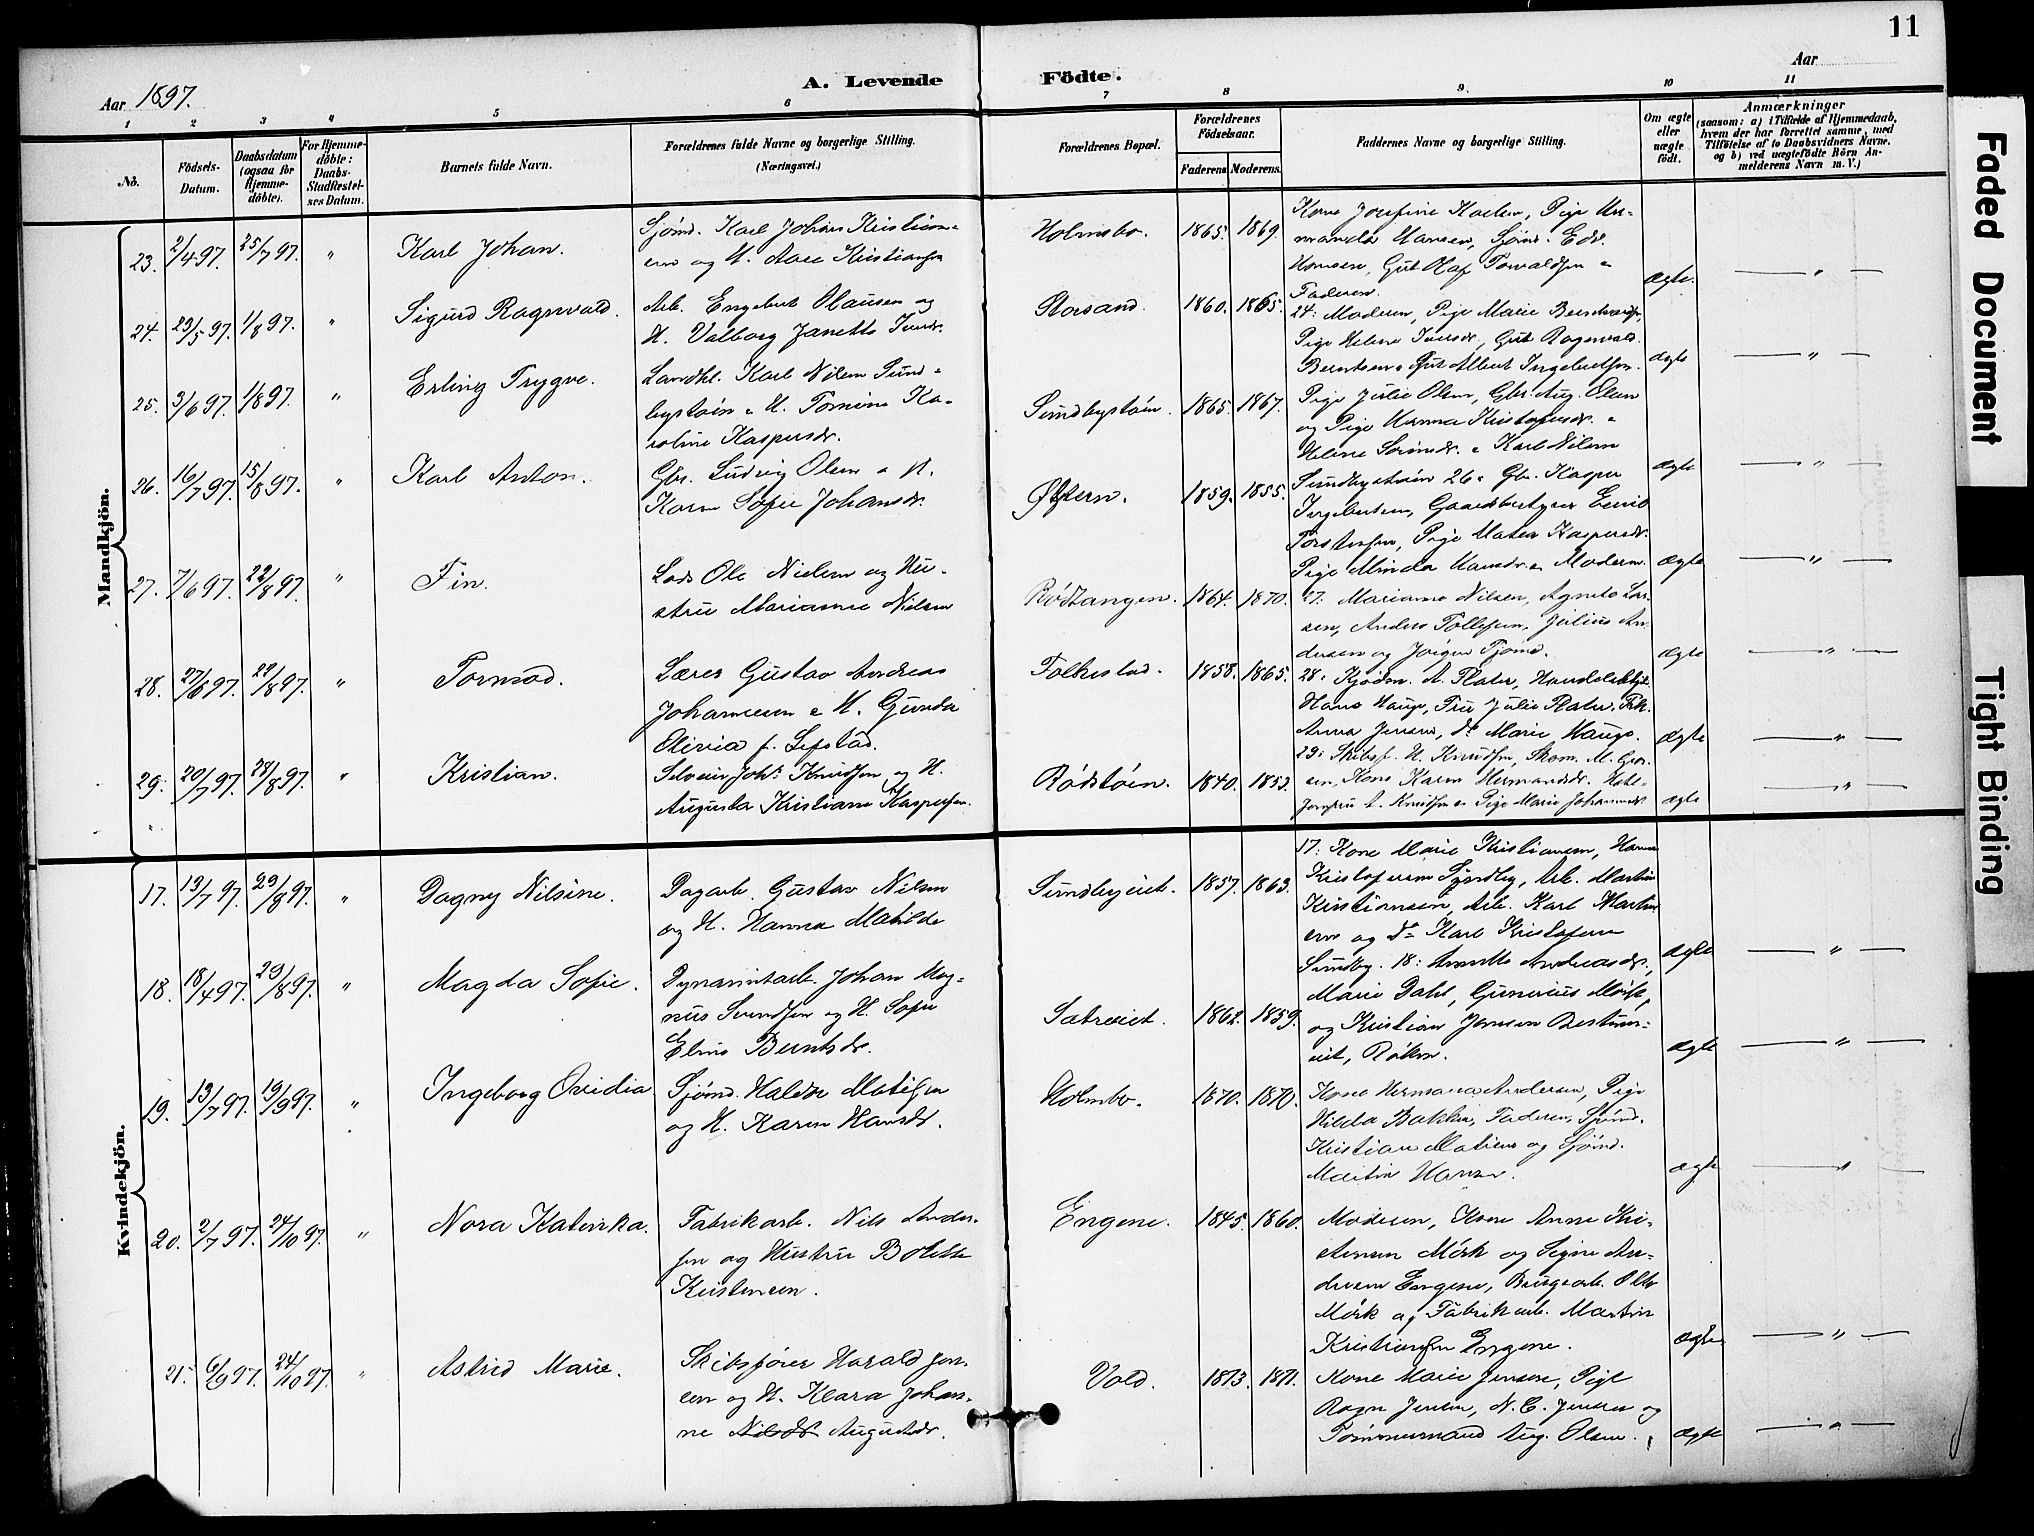 11
A. Levende Födte.
Aar 1897.
Aar
1 2 3 4 5 6 7 8 9. 10 11
No.
Födsels-Datum.
Daabsdatum (ogsaa for Hjemme-döbte).
For Hjemme-döbte: Daabs-Stadfæstel-ses Datum.
Barnets fulde Navn.
Forældrenes fulde Navne og borgerlige Stilling. (Næringsvei.)
Forældrenes Bopæl.
Forældrenes Födselsaar.
Faderens Moderens.
Faddernes Navne og borgerlige Stilling.
Om ægte eller uægte födt.
Anmærkninger
(saasom: a) i Tilfælde af Hjemmedaab, hvem der har forrettet samme, med Tilföielse af to Daabsvidners Navne, og b) ved uægtefödte Börn An-melderens Navn m. V.)
Mandkjön.
23. 2/4 97. 25/7 97. " Karl Johan.
Sjømd. Karl Johan Kristian-
sen og H. Aase Kristiansen
Holmsbo. 1865. 1869.
Kone Josefine Karlsen, Pige Her-
manda Hansen, Sjømd. Edv.
Hansen, Gut Olaf Torvaldsen &
Faderen.
ægte. "
24. 23/5 97. 1/8 97. " Sigurd Ragnvald.
Arb. Engebret Olausen og
H. Valborg Janette Iversdr.
Storsand. 1860. 1865.
24: Moderen, Pige Marie
Pige Helene Iversdr, Gut Ragnvald
Berntsen & Gut Albert Ingebretsen.
ægte "
25. 3/6 97. 1/8 97. " Erling Trygve.
Landhl. Karl Nilsen Sund-
bystøin & H. Tomine Ka-
roline Kaspersdr.
Sundbystøin. 1865. 1867.
Pige Julie Olsen, Gbr. Aug. Olsen
og Pige Hanna Kristofersdr. &
Helene & Karl Nilsen
Sundbystøin
ægte "
26. 16/7 97. 15/8 97. " Karl Anton.
Gbr. Ludvig Olsen & H.
Karen Sofie Johansdr.
1859. 1855.
26: Gbr. Kasper
Ingebretsen, Gaardbestyrer
Torstensen, Pige Matea Kaspersdr.
Pige Minda Hansdr. & Moderen.
ægte "
27. 7/6 97. 22/8 97. " Fin.
Lods Ole Nielsen og Hu-
stru Marianne Nilsen
Rødtangen. 1864. 1870.
27: Marianne Nilsen, Agnete Lar-
sen, Anders Tollefsen, Julius An-
dersen og Jørgen Tjøme.
ægte "
28. 27/6 97. 22/8 97. " Tormod.
Lærer Gustav Andreas
Johannesen & H. Gunda
Olivia f. Sefstad.
Folkestad. 1858. 1865.
28: Kjøbm. A. Plater,
Hans Hauge, Fru Julie Plater, Frk.
Anna Jensen, do Marie Hauge.
ægte "
29. 20/7 97. 28/8 97. " Kristian.
Selveier Johs. Knudsen og H.
Augusta Kristiane Kaspersen.
Rødstøin. 1840. 1853.
29: Skibsf. H. Knudsen, Skom. M.
Kone Karen Hermandsdr.
Jomfru A. Knudsen & Pige Marie Johannesdr.
ægte "
Kvindekjön.
17. 13/7 97. 29/8 97. " Dagny Nilsine.
Dagarb. Gustav Nilsen
og H. Hanna Matilde
Sundbyeiet. 1857. 1863.
17: Kone Marie Kristiansen, Hanna
Kristofersen Sundby, Arb. Martin
Kristiansen, Arb. Karl Martin
sen og do Karl Kristofersen
Sundby.
ægte "
18. 18/4 97. 29/8 97. " Magda Sofie.
Dynamitarb. Johan Mag-
nus Svendsen og H. Sofie
Eline Berntsdr.
Sætreeiet. 1862. 1859.
18: Annette Andreasdr.,
Marie Dahl, Gunerius Mørk,
og Kristian Jensen
eiet, Røken.
ægte "
19. 13/7 97. 19/9 97. " Ingeborg Ovidia
Sjømd. Haldor Matisen
og H. Karen Hansdr.
Holmsbo. 1870. 1870.
Kone Hermana Andersen, Pige
Hilda Bakken, Faderen, Sjømd.
Kristian Matisen og Sjømd.
Martin Hansen.
ægte "
20. 2/7 97. 24/10 97. " Nora Katinka.
Fabrikarb. Nils Ander-
sen og Hustru Bolette
Kristensen.
Engene. 1845. 1860.
Moderen, Kone Anne Kri-
stensen Mørk og Signe An-
dersen Engene, Brugsarb. Otto
Mørk og Fabrikarb. Martin
Kristiansen Engene.
ægte "
21. 6/9 97. 24/10 97. " Astrid Marie.
Skibsfører Harald Jen-
sen og H. Klara Johan-
ne Augustsdr.
Vold. 1873. 1871.
Kone Marie Jensen, Pige
Ragna Jensen, N. C. Jensen og
Tømmermand Aug. Olsen.
ægte "
Faded Document
Tight Binding